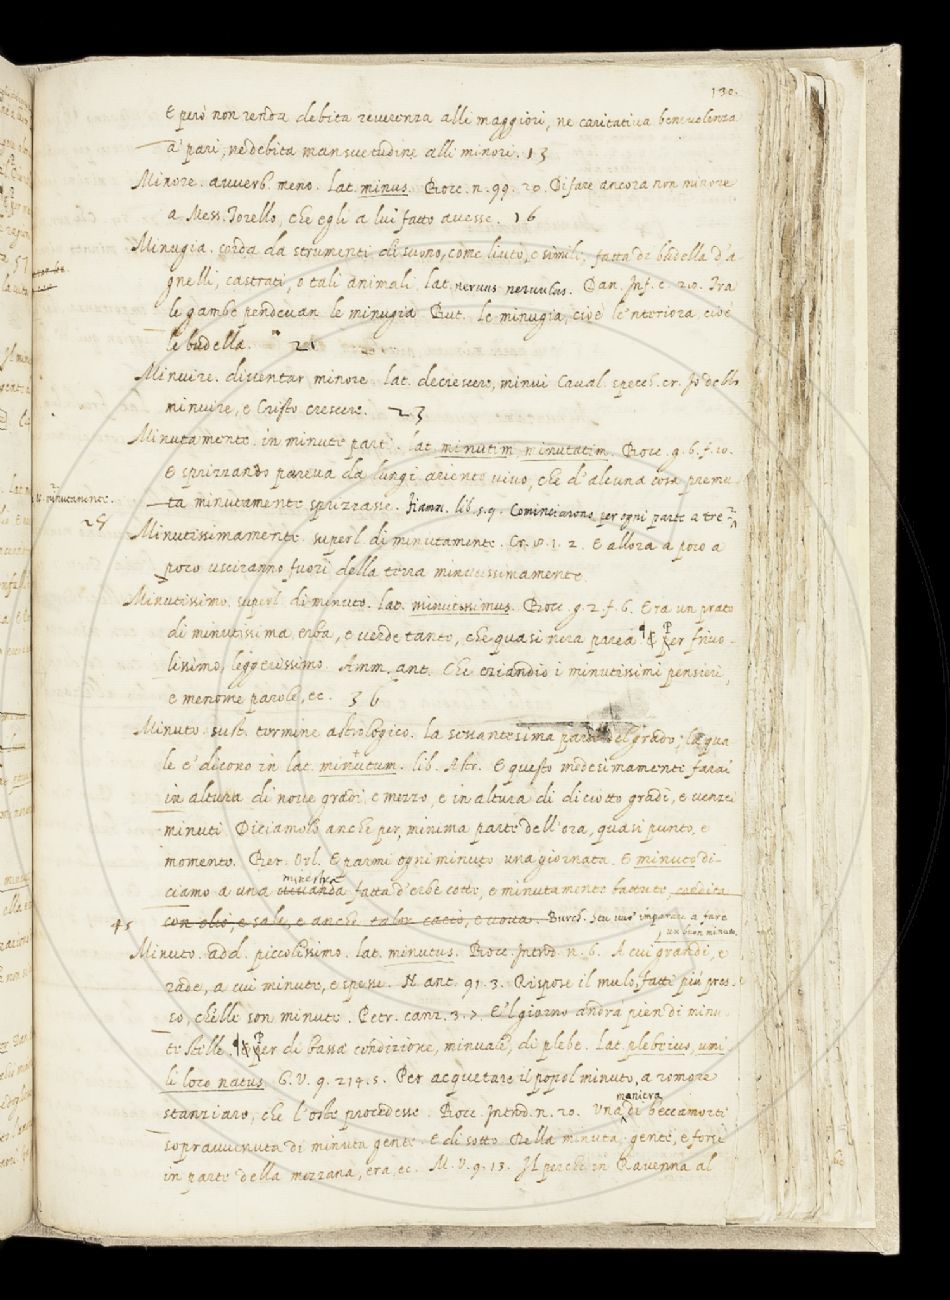 130.
E però non renda debita reverenza alle maggiori, ne caritativa benevolenza
a' pari, ne debita mansuetudine alli minori. 13
Minore. avverb. meno. lat. minus. Bocc. n. 99. 20. Di fare ancora non minore
a Mess. Torello, che egli a lui fatto avesse. 16
Minugia. corda da strumenti di suono, come liuto, e simili, fatta di budella d'a-
gnelli, castrati, o tali animali. lat. nervus nervulus. Dan. Inf. c. 28. Tra
le gambe pendevan le minugia. But. le minugia, cioè le 'nteriora, cioè
le budella. 21
Minuire. diventar minore. lat. decrescere, minui. Caval. specch. cr. Io debbo
minuire, e Cristo crescere. 23
Minutamente. in minute parti. lat. minutim, minutatim. Bocc. g. 6. f. 10.
E sprizzando pareva da lungi ariento vivo, che d'alcuna cosa premu-
ta minutamente sprizzasse. Fiamm. lib. 5. 9. Cominciarono per ogni parte a tre
minutamente.
28
Minutissimamente. superl. di minutamente. Cr. 1. 2. E allora a poco a
poco usciranno fuori della terra minutissimamente.
Minutissimo. superl. di minuto. lat. minutissimus. Bocc. g. 2. f. 6. Era un prato
di minutissima erba, e verde tanto, che quasi nera parea ¶ Per frivo-
lissimo, leggerissimo. Amm. ant. Che eziandio i minutissimi pensieri,
e menome parole, ec. 36
Minuto. sust. termine astrologico. la sessantesima parte del grado; la qua
le e' dicono in lat. minutum. lib. Astr. E questo medesimamente farai
in altura di nove gradi e mezzo, e in altura di diciotto gradi, e venti
minuti. Diciamolo anche per, minima parte dell'ora, quasi punto, e
momento. Bern. Orl. E parmi ogni minuto una giornata. E minuto di-
ciamo a una vivanda minestra fatta d'erbe cotte, e minutamente battute, condita
con olio, e sale, e anche cacio, e uova. Burch. Se tu vuo' imparare a fare
un buon minuto.
45
Minuto. add. piccolissimo. lat. minutus. Bocc. Introd. n. 6. A cui grandi, e
rade, a cui minute, e spesse. N. ant. 91. 3. Rispose il mulo, fatti più pres-
so, ch'elle son minute. Petr. canz. 3. 7. E 'l giorno andrà pien di minu
te stelle. ¶ Per di bassa condizione, minuale, di plebe. lat. plebeius, umi
li loco natus. G. V. 9. 214. 5. Per acquetare il popol minuto, a romore
stanziaro, che l'oste procedesse. Bocc. Introd. n. 20. Una maniera di beccamorti
sopravvenuta di minuta gente. E di sotto. Della minuta gente, e forse
in parte della mezzana, era, ec. M. V. 9. 13. Il perchè in Ravenna al